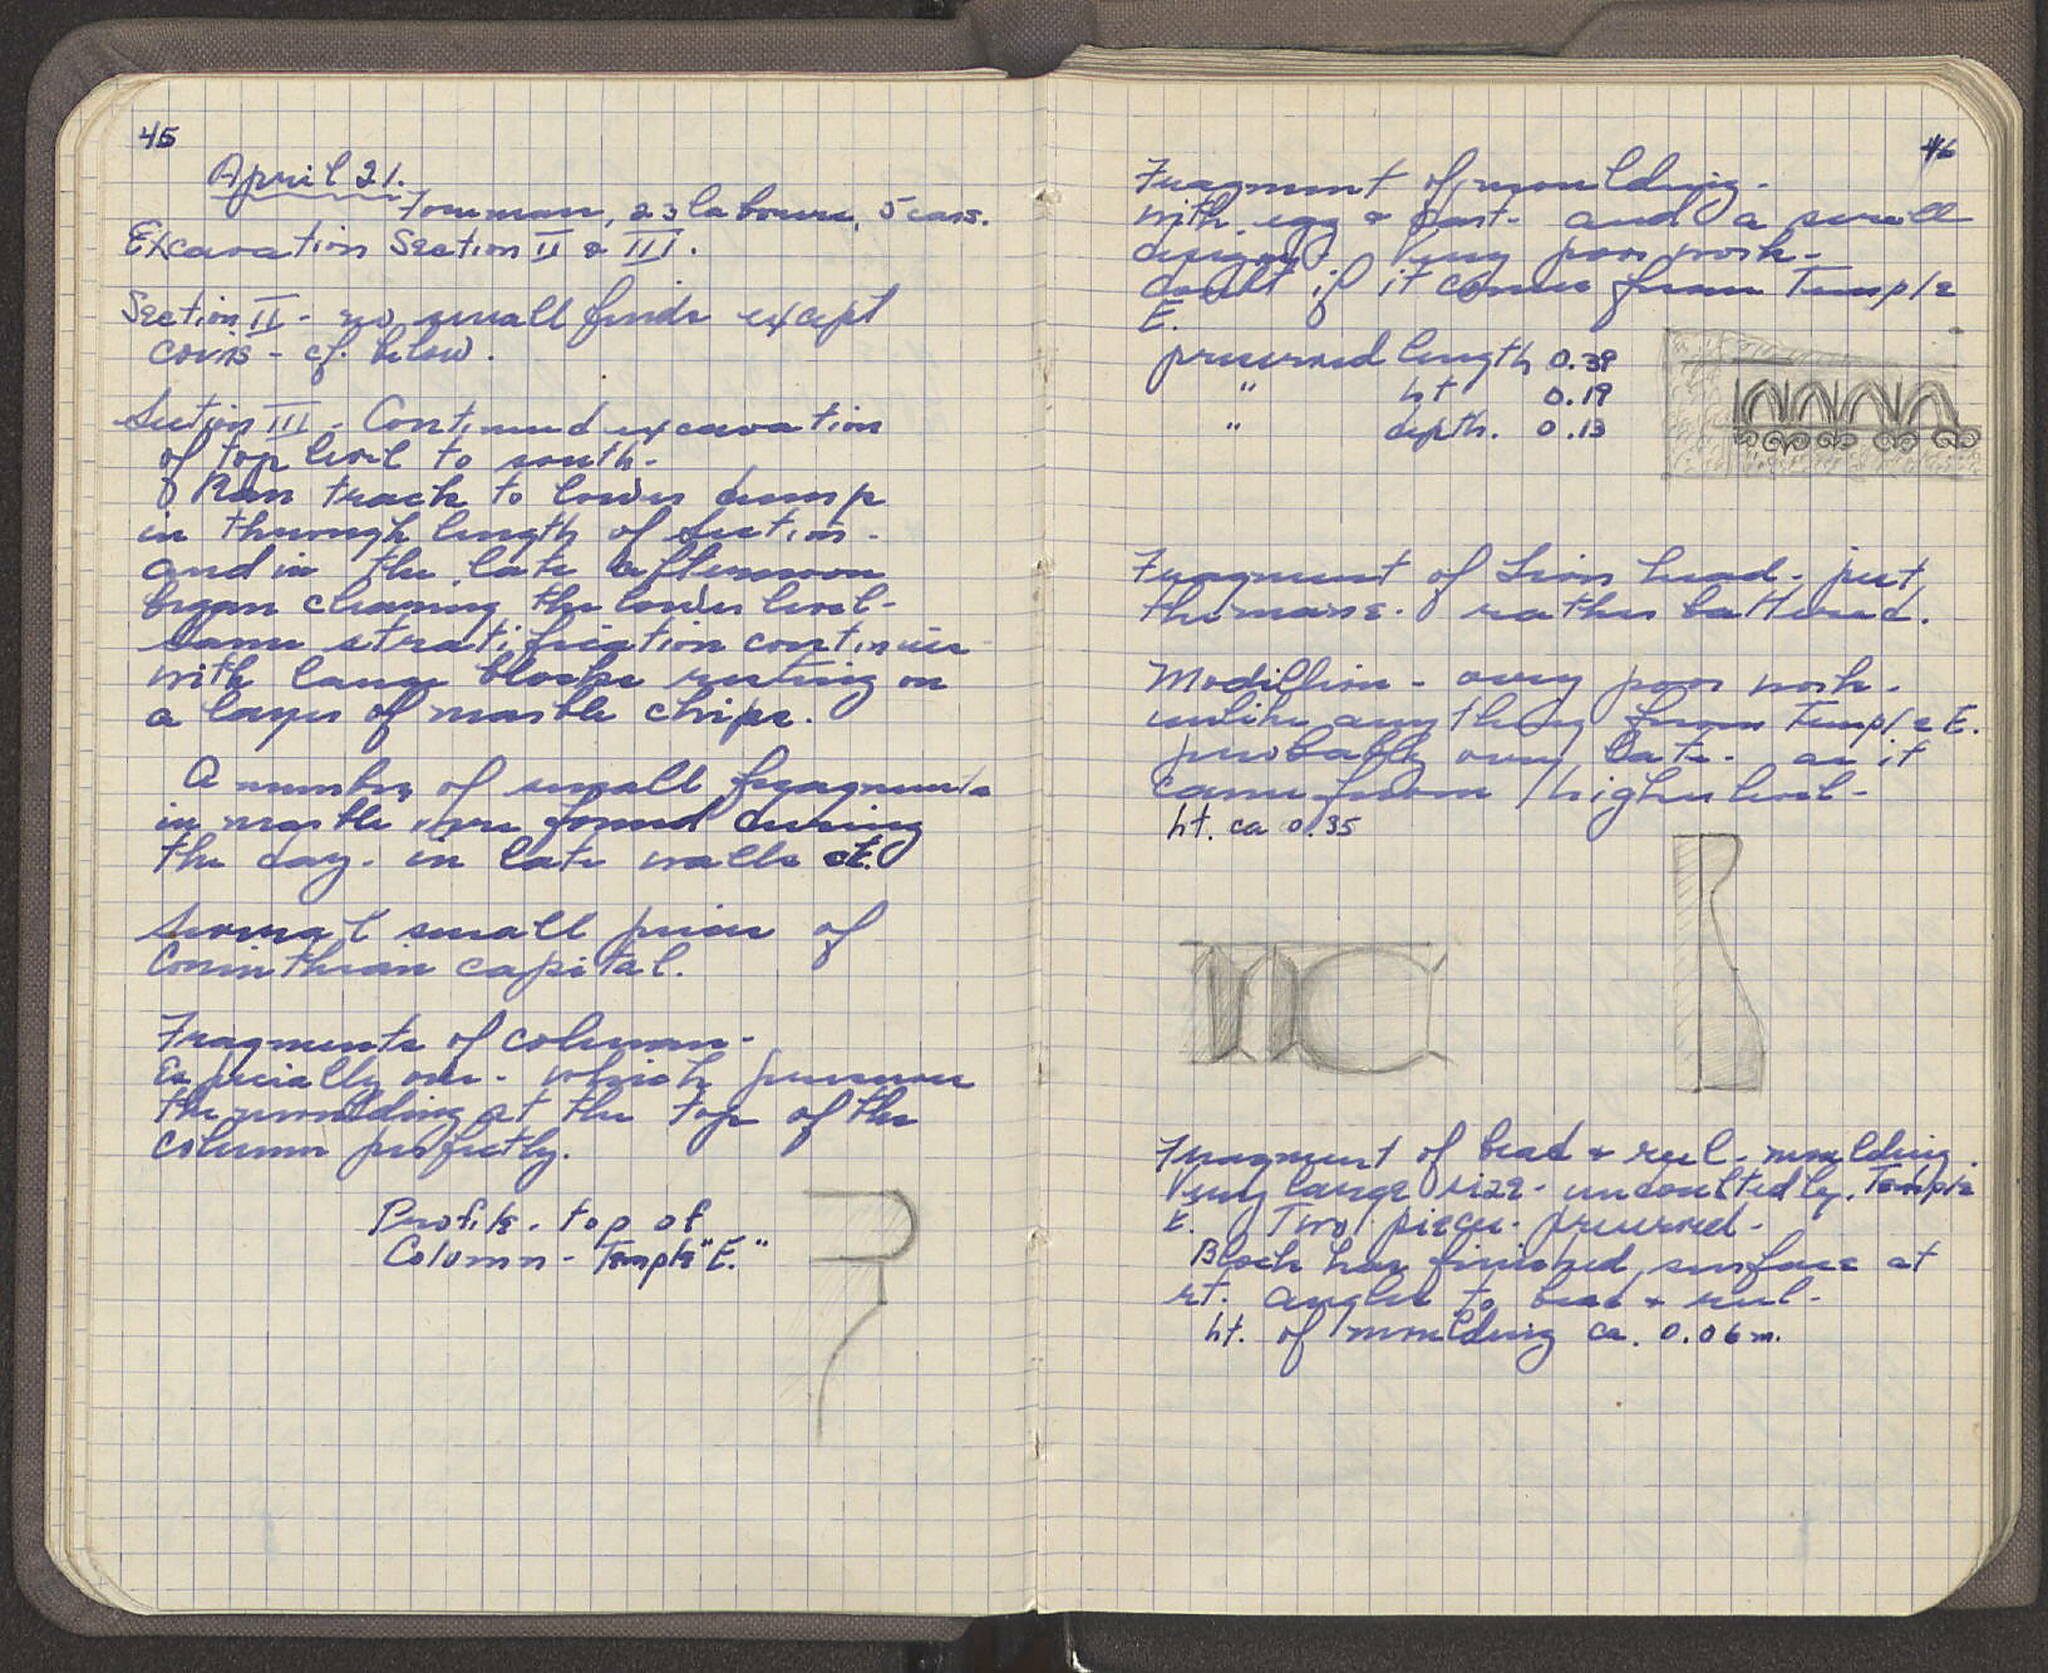 45
April 21.
Foreman, 23 labourers, 5 cars.
Excavation Section II & III.
Section II - no small finds except
coins - cf. below.
Section III - Continued excavation
of top level to south.
Ran track to lower dump
in through length of Section.
and in the late afternoon
began cleaning the lower level -
same stratification continues
with large blocks resting on
a layer of marble chips.
A number of small fragments
in marble were found during
the day. in late walls etc.
Several small pieces of
Corinthian capital.
Fragments of column -
Especially one - which preserves
the moulding at the top of the
column perfectly.
Profile. top of
Column - Temple "E."
46
Fragment of moulding -
with egg & dart - and a scroll
design. Very poor work -
doubt if it comes from Temple
E.
preserved length 0.39
" ht 0.19
" depth. 0.13
Fragment of Lion head - just
the mane. rather battered.
Modillion - very poor work -
unlike anything from Temple E.
probably very late - as it
came from higher level -
ht. ca 0.35
Fragment of bead & reel - moulding.
Very large size - undoubtedly, Temple
E. Two pieces preserved -
Block has finished surface at
rt. angles to bead & reel -
ht. of moulding ca. 0.06 m.